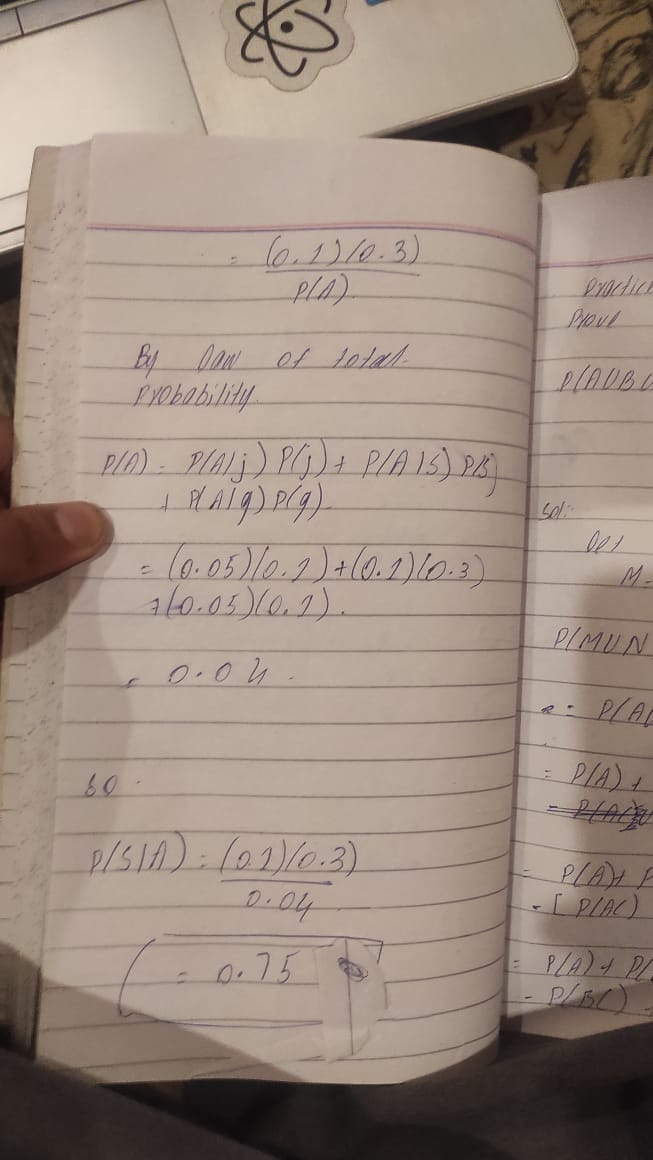 = (0.1)(0.3)
P(A).
By law of total
Probability.
P(A) = P(A|j) P(j) + P(A|S) P(S)
+ P(A|g) P(g).
= (0.05)(0.1)+(0.1)(0.3)
+(0.05)(0.1).
= 0.04.
so
P(S|A) = (0.1)(0.3)
0.04
= 0.75
Prove
P(AUBU
Sol:
M-
P(MUN
= P(AU
= P(A) +
- P(A)+ P
- [P(AC)
= P(A) + P(
- P(BC) -